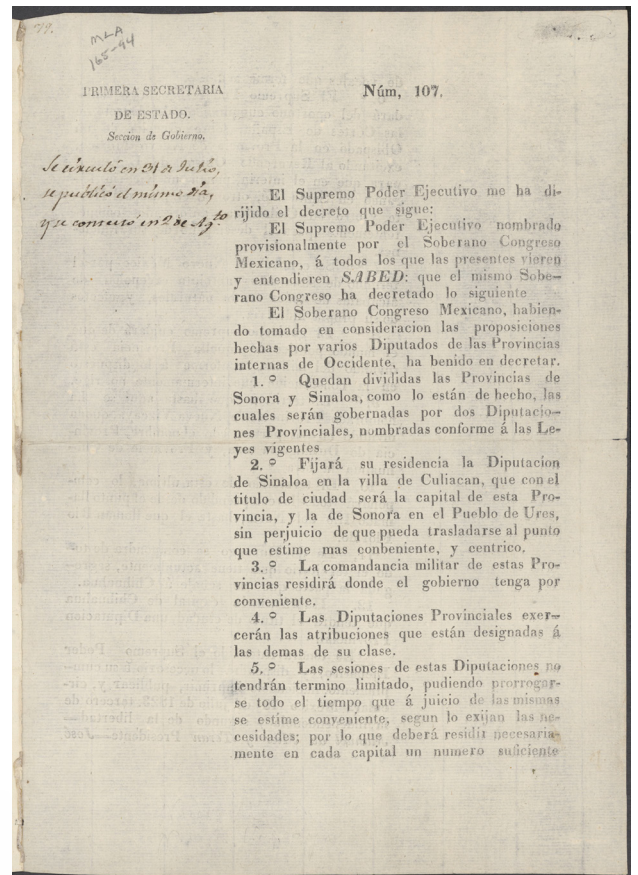 79.
MLA
165-94
PRIMERA SECRETARIA
DE ESTADO.
Seccion de Gobierno.
Se circuló en 31 de Julio,
se publicó el mismo dia,
y se contestó en 2 de Agto
Núm, 107.
El Supremo Poder Ejecutivo me ha di-
rijido el decreto que sigue:
El Supremo Poder Ejecutivo nombrado
provisionalmente por el Soberano Congreso
Mexicano, á todos los que las presentes vieren
y entendieren SABED: que el mismo Sobe-
rano Congreso ha decretado lo siguiente
El Soberano Congreso Mexicano, habien-
do tomado en consideracion las proposiciones
hechas por varios Diputados de las Provincias
internas de Occidente, ha benido en decretar.
1.º Quedan divididas las Provincias de
Sonora y Sinaloa, como lo están de hecho, las
cuales serán gobernadas por dos Diputacio-
nes Provinciales, nombradas conforme á las Le-
yes vigentes
2.º Fijará su residencia la Diputacion
de Sinaloa en la villa de Culiacan, que con el
titulo de ciudad será la capital de esta Pro-
vincia, y la de Sonora en el Pueblo de Ures,
sin perjuicio de que pueda trasladarse al punto
que estime mas conbeniente, y centrico.
3.º La comandancia militar de estas Pro-
vincias residirá donde el gobierno tenga por
conveniente.
4.º Las Diputaciones Provinciales exer-
cerán las atribuciones que están designadas á
las demas de su clase.
5.º Las sesiones de estas Diputaciones no
tendrán termino limitado, pudiendo prorrogar-
se todo el tiempo que á juicio de las mismas
se estime conveniente, segun lo exijan las ne-
cesidades; por lo que deberá residir necesaria-
mente en cada capital un numero suficiente